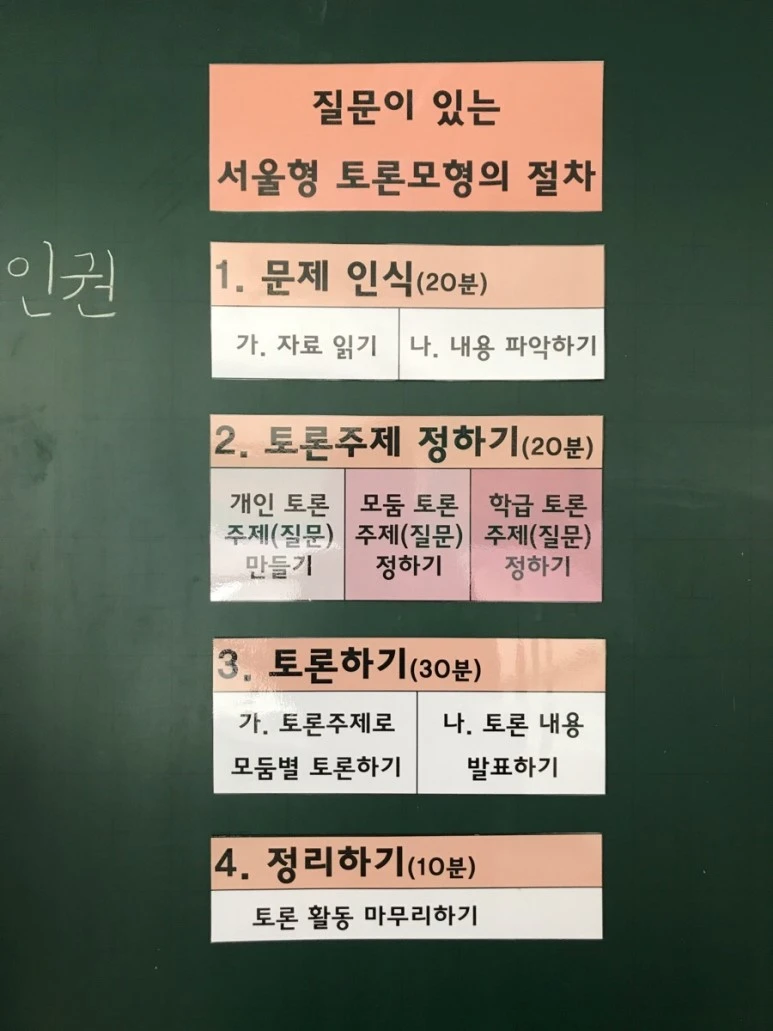 질문이 있는
서울형 토론모형의 절차
인권
1. 문제 인식(20분)
가. 자료 읽기
나. 내용 파악하기
2. 토론주제 정하기(20분)
개인 토론
주제(질문)
만들기
모둠 토론
주제(질문)
정하기
학급 토론
주제(질문)
정하기
3. 토론하기(30분)
가. 토론주제로
모둠별 토론하기
나. 토론 내용
발표하기
4. 정리하기(10분)
토론 활동 마무리하기